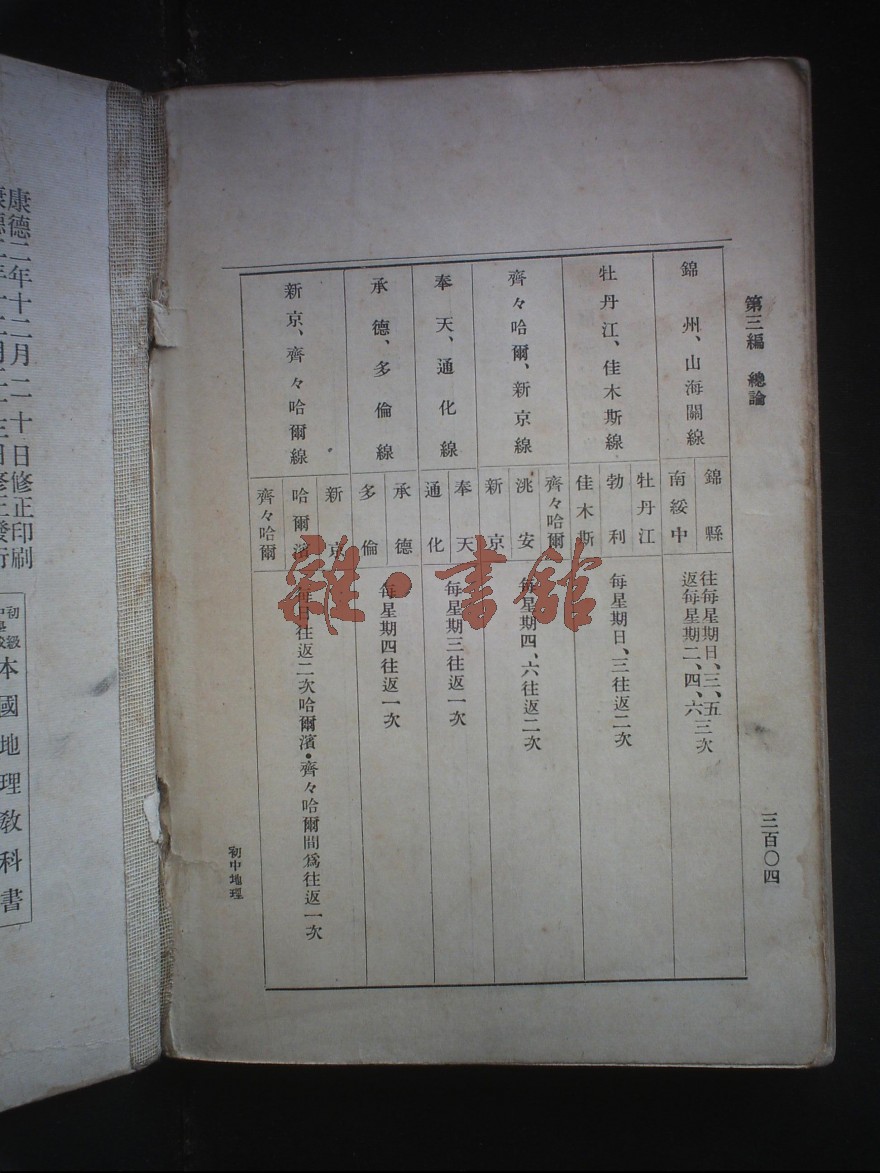 第三編 總論
三百〇四
錦州、山海關線
錦縣
南綏中
往每星期日、三、五
返每星期二、四、六
三次
牡丹江、佳木斯線
牡丹江
勃利
佳木斯
每星期日、三往返二次
齊々哈爾、新京線
齊々哈爾
洮安
新京
每星期四、六往返二次
奉天、通化線
奉天
通化
每星期三往返一次
承德、多倫線
承德
多倫
每星期四往返一次
新京、齊々哈爾線
新京
哈爾濱
齊々哈爾
每日往返二次哈爾濱・齊々哈爾間爲往返一次
初中地理
雜・書館
康德二年十二月二十日修正印刷
修正發行
初級
本國地理教科書